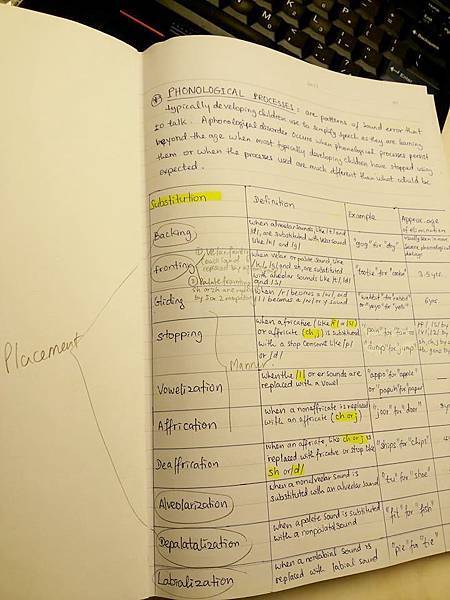 PHONOLOGICAL PROCESSES: are patterns of sound error that
typically developing children use to simplify speech as they are learning
to talk. A phonological disorder occurs when phonological processes persist
beyond the age when most typically developing children have stopped using
them or when the processes used are much different than what would be
expected.
Substitution Definition Example Approx. age
of elimination
Backing when alveolar sounds, like /t/ and
/d/, are substituted with velar sound
like /k/ and /g/ "gog" for "dog" Usually seen in more
severe phonological
delay
fronting when velar or palatal sound, like
/k/, /g/ and sh, are substituted
with alveolar sounds like /t/, /d/
and /s/ "tootie" for "cookie" 3.5 yrs.
① Velar
replaced by
② Palatal fronting
Gliding when /r/ becomes a /w/, and
/l/ becomes a /w/ or y sound "wabbit" for "rabbit"
or "yeyo" for "yellow" 6 yrs.
Stopping when a fricative (like /f/ or /s/)
or affricate (ch, j) is substituted
with a stop consonant like /p/
or /d/ "pan" for "fan"
"dump" for "jump"
Manner
Placement
Vowelization when the /l/ or er sounds are
replaced with a vowel "appo" for "apple"
or "papuh" for "paper"
Affrication when a nonaffricate is replaced
with an affricate (ch or j) "joor" for "door"
Deaffrication when an affricate, like ch or j is
replaced with fricative or stop like
sh or /d/ "ships" for "chips"
Alveolarization when a nonalveolar sound is
substituted with an alveolar sound "tu" for "shoe"
Depalatalization when a palatal sound is substituted
with a nonpalatal sound "fit" for "fish"
Labialization when a nonlabial sound is
replaced with labial sound "pie" for "tie"